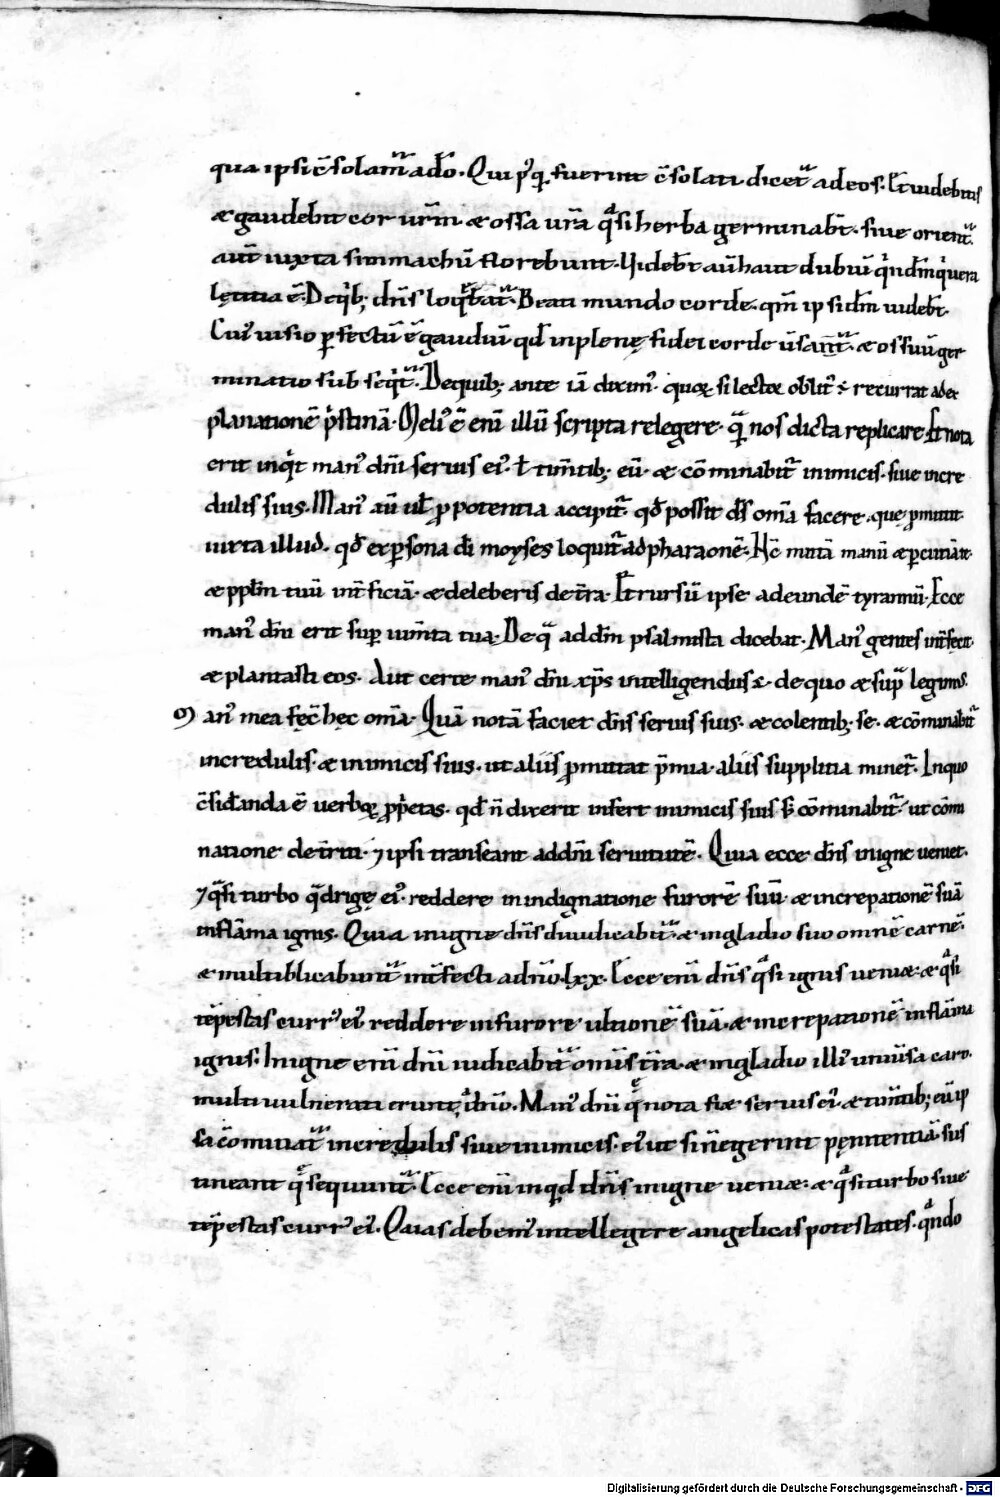 qua ipsi c̄solam̄ ado᷒. Qui p᷒q fuerint c̄solati dicet᷒ ad eos. Et uidebitis
& gaudebit cor ur̄m & ossa ur̄a q̄si herba germinab̄t. siue orient᷒.
aut̄ iuxta simmachū florebunt. Videb̄t aūt haut dubiū qn̄ dm̄ q uera
lętitia ē. De qb; dn̄s loq̄bat᷒. Beati mundo corde. qm̄ ipsi dm̄ uideb̄t.
Cui᷒ uisio p̱fectū ē gaudiū qd̄ inplenę fidei corde uersat᷒. & ossuū ger
minatio subseq̄t᷒. De quib; ante iā diximus. quę si lector oblit᷒ ē recurrat ad ex
planationē p̄stinā. Meli᷒ ē enī illū scripta relegere. q̄ nos dicta replicare. Et nota
erit inqt man᷒ dnī seruis ei᷒. ł timtib; eū. & cōminabit᷒ inimicis. siue incre
dulis suis. Man᷒ aū uł p potentia accipit᷒. qd̄ possit ds̄ omā facere quę pmittit.
iuxta illud. qd̄ ex p̱sona dī moyses loquit᷒ ad pharaonē. Nc̄ mittā manū & p̱cutiā te.
& pplm̄ tuū int̄ficiā. & deleberis de tr̄a. Et rursū ipse ad eundē tyrannū. Ecce
man᷒ dnī erit sup iumta tua. De q̄ ad dm̄ psalmista dicebat. Man᷒ gentes int̄fecit.
& plantasti eos. Aut certe man᷒ dnī xp̄s intelligendus ē. de quo & sup̄ legimus.
M an᷒ mea fęc̄ hęc omā. Quā notā faciet dn̄s seruis suis. & colentib; se. & cōminabit᷒
incredulis. & inimicis suis. ut aliis pmittat p̄mia. aliis supplitia minet᷒. In quo
c̄siđanda ē uerboꝝ pp̄etas. qd̄ n̄ dixerit infert inimicis suis s; cōminabit᷒. ut cōmi
natione detr̄iti. ⁊ ipsi transeant ad dnī seruitutē. Quia ecce dn̄s in igne ueniet.
⁊ q̄si turbo q̄drigę ei᷒. reddere in indignatione furorē suū. & increpationē suā
in flāma ignis. Quia in igne dn̄s diiudicabit᷒. & in gladio suo omnē carnē.
& multiblicabunt᷒ int̄fecti a dn̄o. lxx. Ecce enī dn̄s q̄si ignis ueniet. & q̄si
tēpestas curr᷒ ei᷒. reddere in furore ultionē suā. & increpationē in flāma
ignis. In igne enī dnī iudicabit᷒ omnis tr̄a. & in gladio illi᷒ uniūsa caro.
multi uulnerati erunt a dn̄o. Man᷒ dnī q̄ nota fi& seruis ei᷒. & timtib; eū ip
sa cōminat᷒ incredulis siue inimicis. ei᷒ ut si n̄ egerint pęnitentiā. sus
tineant q̄ sequunt᷒. Ecce enī inqd dn̄s in igne ueni&. & q̄si turbo siue
tēpestas curr᷒ ei᷒. Quas debem᷒ intellegere angelicas potestates. qn̄do
Digitalisierung gefördert durch die Deutsche Forschungsgemeinschaft - DFG